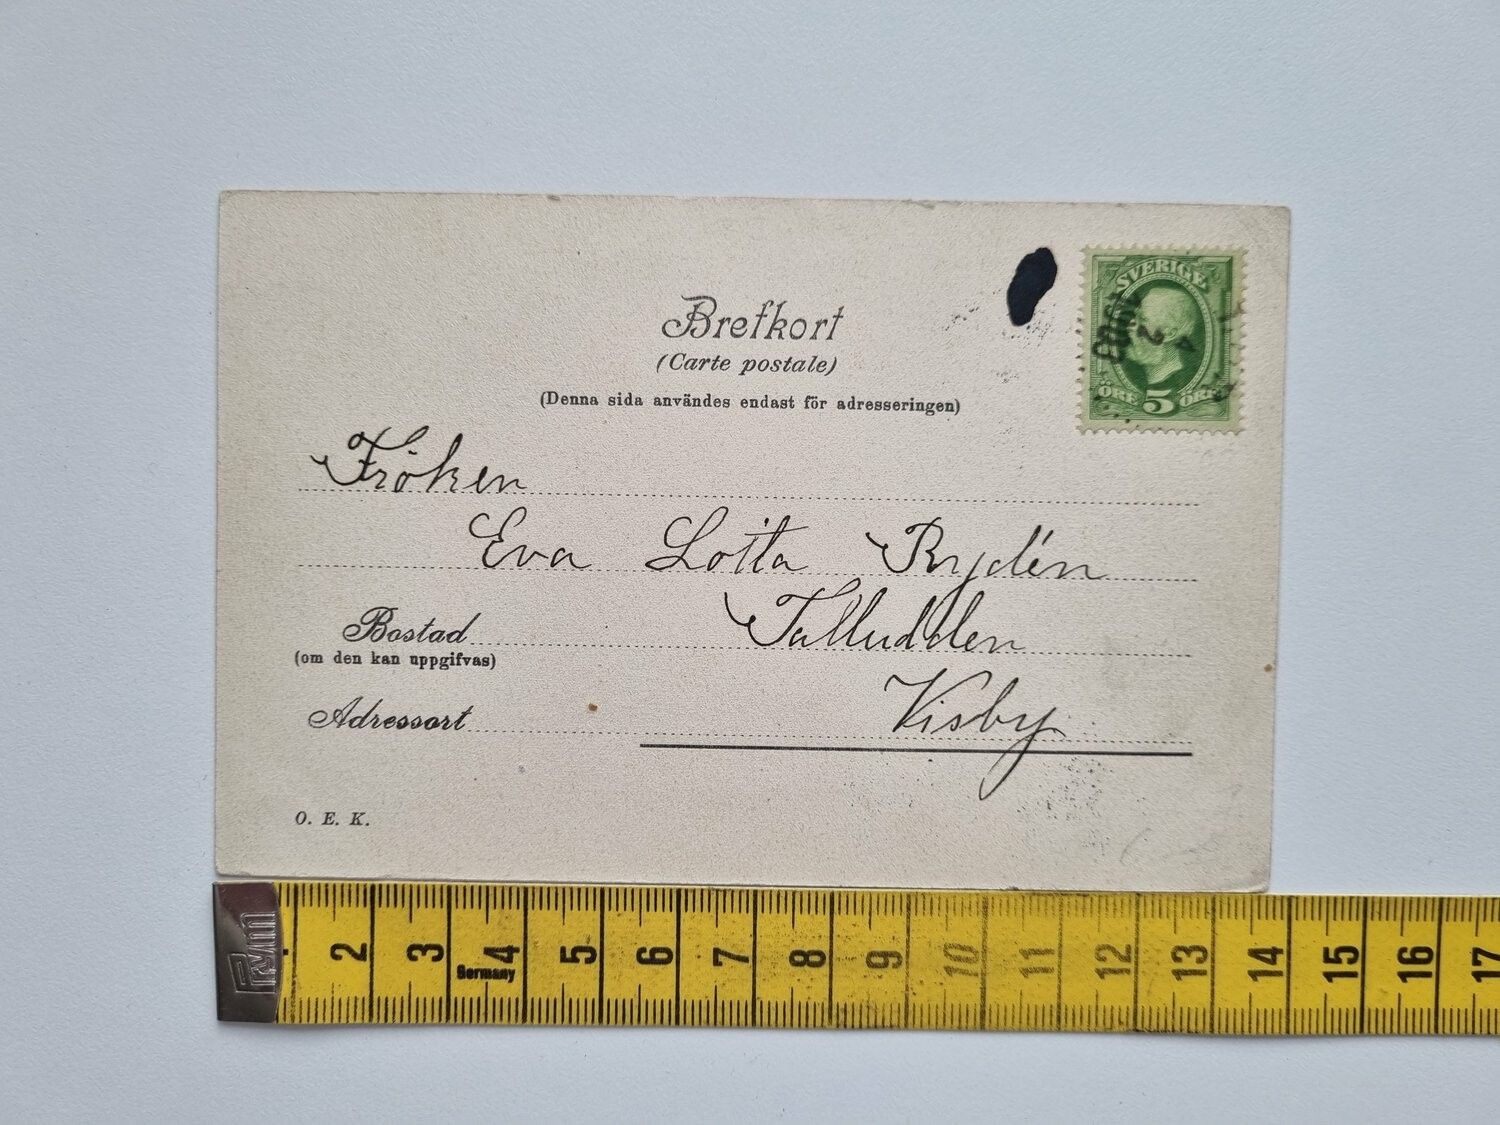 SVERIGE
1903
2
4
ÖRE 5 ÖRE
Brefkort
(Carte postale)
(Denna sida användes endast för adresseringen)
Fröken
Eva Lotta Rydén
Bostad Talludden
(om den kan uppgifvas)
Adressort Visby
O. E. K.
Prym
2 3 4 5 6 7 8 9 10 11 12 13 14 15 16 17
Germany